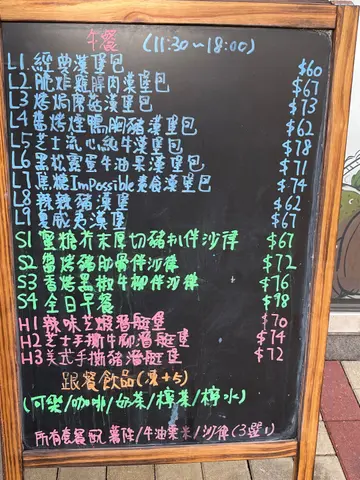 午餐 (11:30~18:00)
L1 經典漢堡包 $60
L2 脆炸雞髀肉漢堡包 $67
L3 烤焗蘑菇漢堡包 $73
L4 醬烤煙鴨胸豬漢堡包 $62
L5 芝士流心純牛漢堡 $78
L6 黑松露蛋牛油果漢堡包 $71
L7 焦糖Impossible素食漢堡包 $74
L8 辣辣豬漢堡 $62
L9 夏威夷漢堡 $67
S1 蜜糖芥末厚切豬扒伴沙律 $67
S2 醬烤豬肋骨伴沙律 $72
S3 香烤黑椒牛柳伴沙律 $76
S4 全日早餐 $98
H1 辣味芝蝦潛艇堡 $70
H2 芝士手撕牛胸潛艇堡 $74
H3 美式手撕豬潛艇堡 $72
跟餐飲品(凍+5)
(可樂/咖啡/奶茶/檸茶/檸水)
所有套餐配薯條/牛油粟米/沙律(3選1)